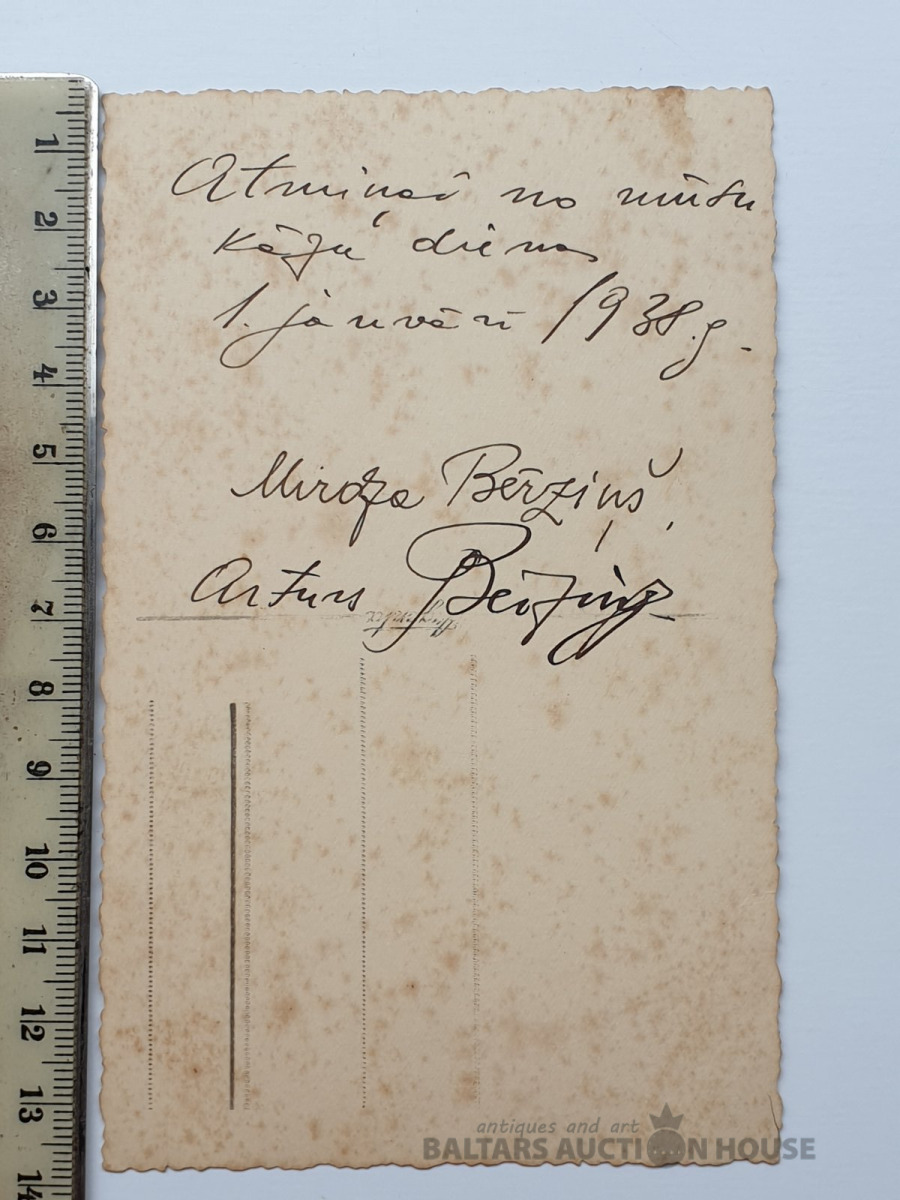 Atmiņai no mūsu
kāzu dienas
1. janvārī 1938.g.
Mirdza Bērziņš,
Arturs Bērziņš
1
2
3
4
5
6
7
8
9
10
11
12
13
14
antiques and art
BALTARS AUCTION HOUSE